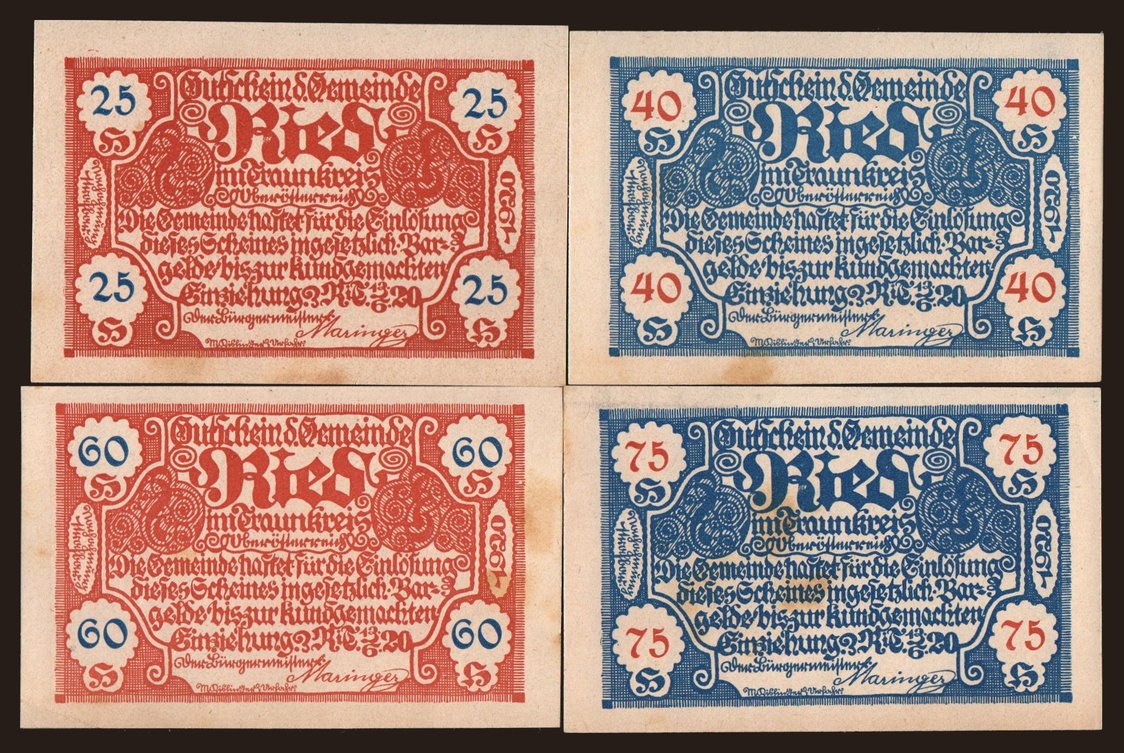 25
Gutschein d. Gemeinde
25
H
Ried
H
im Traunkreis
Oberösterreich
Nachahmung strafbar
1920
Die Gemeinde haftet für die Einlösung
dieses Scheines in gesetzlich. Bar-
gelde bis zur kundgemachten
25
Einziehung. R.i.T. 13/5 20
25
H
Der Bürgermeister:
Maringer
H
40
Gutschein d. Gemeinde
40
H
Ried
H
im Traunkreis
Oberösterreich
Nachahmung strafbar
1920
Die Gemeinde haftet für die Einlösung
dieses Scheines in gesetzlich. Bar-
gelde bis zur kundgemachten
40
Einziehung. R.i.T. 13/5 20
40
H
Der Bürgermeister:
Maringer
H
60
Gutschein d. Gemeinde
60
H
Ried
H
im Traunkreis
Oberösterreich
Nachahmung strafbar
1920
Die Gemeinde haftet für die Einlösung
dieses Scheines in gesetzlich. Bar-
gelde bis zur kundgemachten
60
Einziehung. R.i.T. 13/5 20
60
H
Der Bürgermeister:
Maringer
H
75
Gutschein d. Gemeinde
75
H
Ried
H
im Traunkreis
Oberösterreich
Nachahmung strafbar
1920
Die Gemeinde haftet für die Einlösung
dieses Scheines in gesetzlich. Bar-
gelde bis zur kundgemachten
75
Einziehung. R.i.T. 13/5 20
75
H
Der Bürgermeister:
Maringer
H